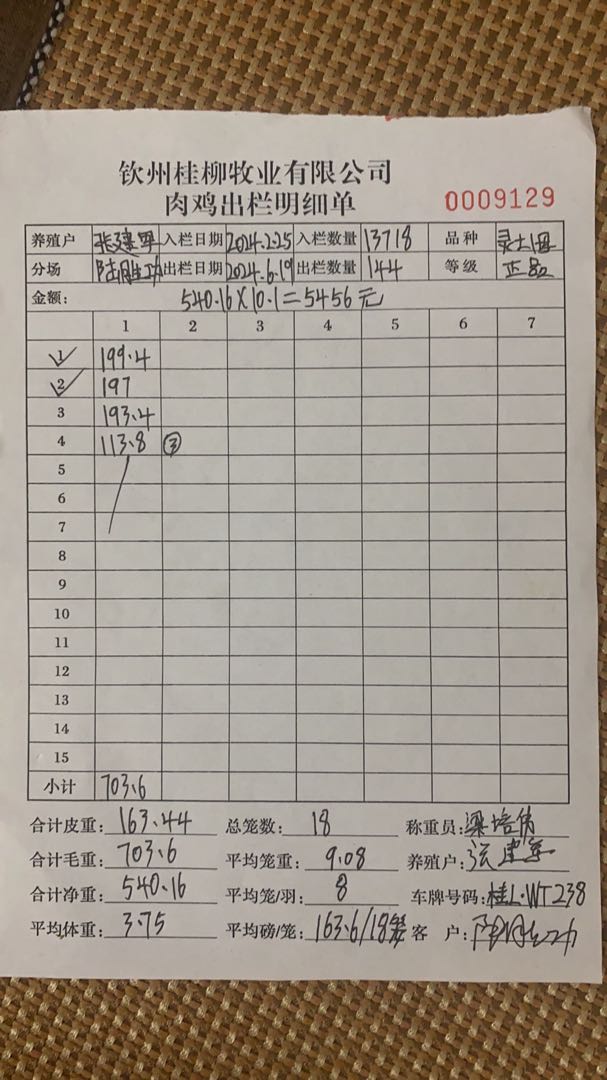 钦州桂柳牧业有限公司
肉鸡出栏明细单
0009129
养殖户 张建军 入栏日期 2024.2.25 入栏数量 13718 品种 灵土1号
分场 出栏日期 2024.6.19 出栏数量 144 等级 正品
金额: 540.16×10.1=5456元
1 2 3 4 5 6 7
1 199.4
2 197
3 193.4
4 113.8 ③
5
6
7
8
9
10
11
12
13
14
15
小计 703.6
合计皮重: 163.44 总笼数: 18 称重员: 梁培伟
合计毛重: 703.6 平均笼重: 9.08 养殖户: 张建军
合计净重: 540.16 平均笼/羽: 8 车牌号码: 桂L·WT238
平均体重: 3.75 平均磅/笼: 163.6/18笼 客 户: